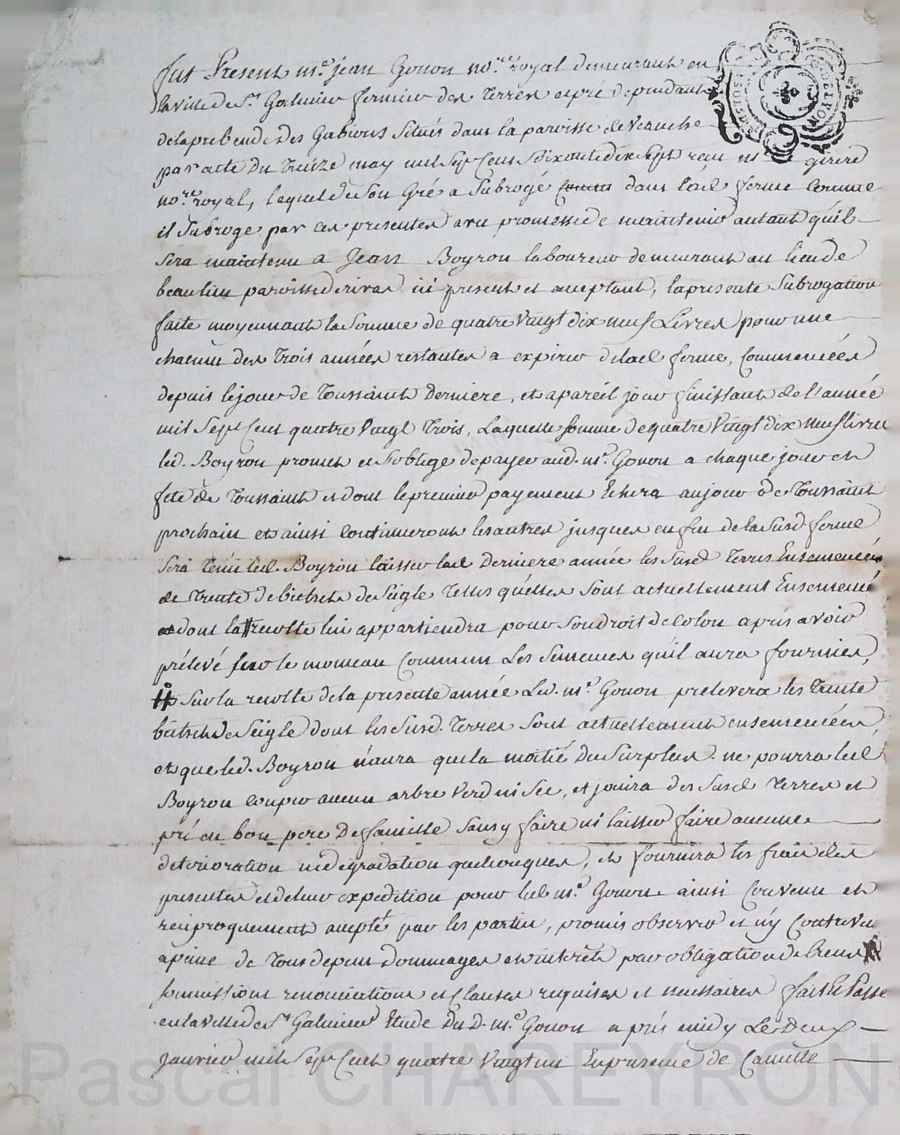 fut Present me. jean Gonon nore. royal demeurant en
la ville de St. Galmier fermier des Terres et pré dependants
de la prebende Des Gabions Situés dans la paroisse de Veauche
par acte Du Treize may mil Sept Cent Soixante dix Sept recu me girerd
nore. royal, lequel de Son Gré a Subrogé dans lad. ferme Comme
il Subroge par ces presentes avec promesse de maintenir autant qu'il
Sera maintenu a Jean Boyron laboureur demeurant au lieu de
beaulieu paroisse de rivas ici present et acceptant, la presente Subrogation
faite moyennant la Somme de quatre Vingt dix neuf Livres pour une
chacune des Trois années restantes a expirer de lad. ferme, Commencées
depuis le jour de Toussaint Derniere, et a pareil jour finissant de l'année
mil Sept Cent quatre Vingt Trois, Laquelle Somme de quatre Vingt dix neuf livres
led. Boyron promet et S'oblige de payer aud. me. Gonon a chaque jour et
fete de Toussaint et dont le premier payement Echera au jour de Toussaint
prochain et ainsi Continueront les autres jusques en fin de la Susd. ferme
Sera tenu led. Boyron laisser lad. derniere année les Susd. Terres Ensemencées
de Trente bichets de Seigle Telles qu'elles Sont actuellement Ensemencées
dont la recolte lui appartiendra pour Son droit de colon après avoir
prélevé Sur le monceau Commun Les Semences qu'il aura fournies,
Sur la recolte de la presente année Led. me. Gonon prelevera les Trente
bichets de Seigle dont les Susd. Terres Sont actuellement ensemencées
et que led. Boyron n'aura que la moitié du Surplus. ne pourra led.
Boyron couper aucun arbre Verd ni Sec, et jouira des Susd. Terres et
pré en bon pere De famille Sans y faire ni laisser faire aucune
deterioration ni dégradation quelconques, et fournira les frais des
presentes et de leur expedition pour led. me. Gonon ainsi Convenu et
reciproquement accepté par les parties, promis observer et n'y Contrevenir
a peine de Tous depens Dommages et interets par obligation de biens
Soumissions renonciations et Clauses requises et necessaires fait et Passé
en la ville de St. Galmier Etude Du d. me. Gonon après midy Le Deux
janvier mil Sept Cent quatre Vingt un En presence de Camille
Pascal CHAREYRON